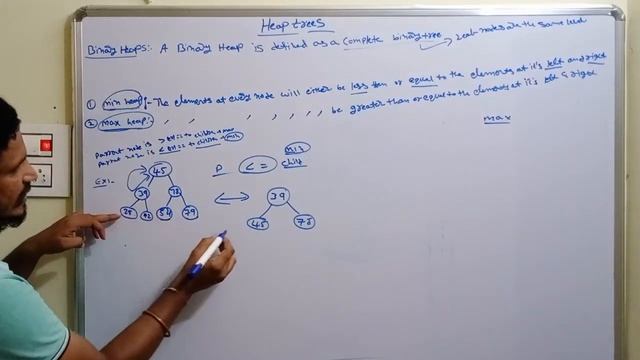 Heap trees
Binary Heaps:- A Binary Heap is defined as a complete binary tree → leaf nodes are the same level
① min heap:- The elements at every node will either be less than or equal to the elements at it's left and right
② max heap:- " " " " " be greater than or equal to the elements at it's left & right
max
Parent node is > or = to children max
Parent node is < or = to children min
min
Ex:- 45 P <= child
39 78 39
28 42 54 79 45 78